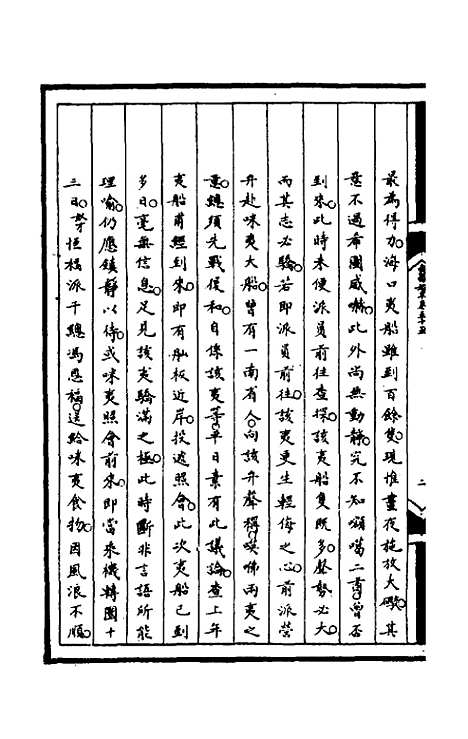 最為得力海口夷船雖到百餘隻現惟晝夜施放大礮其
意不過希圖威嚇此外尚無動靜究不知嘓噶二酋曾否
到來此時未便派員前往查探該夷船隻既多聲勢必大
而其志必驕若即派員前往該夷更生輕侮之心前派營
弁赴咪夷大船曾有一南省人向該弁聲稱嘆咈兩夷之
意總須先戰後和自係該夷等平日素有此議論查上年
夷船甫經到來即有舢板近岸投遞照會此次夷船已到
多日毫無信息足見該夷驕滿之極此時斷非言語所能
理喻仍應鎮靜以待或咪夷照會前來即當乘機轉圜十
三日努恒楊派千總馮恩福送給咪夷食物因風浪不順
二